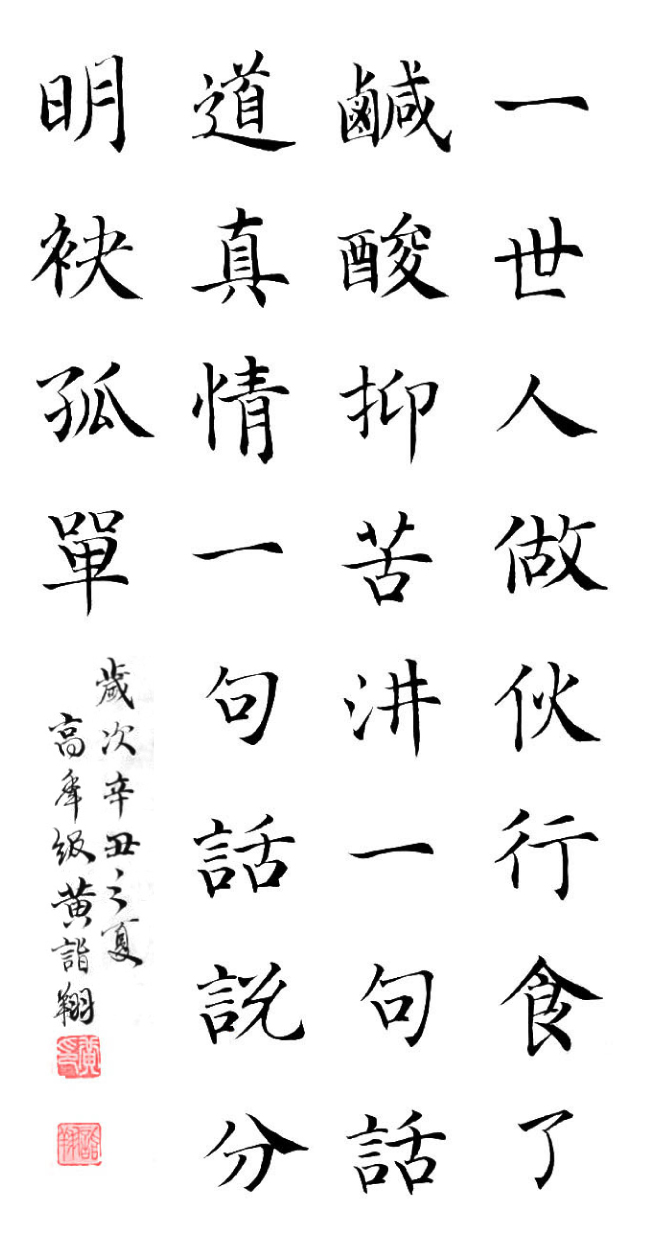 一世人做伙行食了
鹹酸抑苦汫一句話
道真情一句話説分
明袂孤單
歲次辛丑之夏
高年級黃詣翔